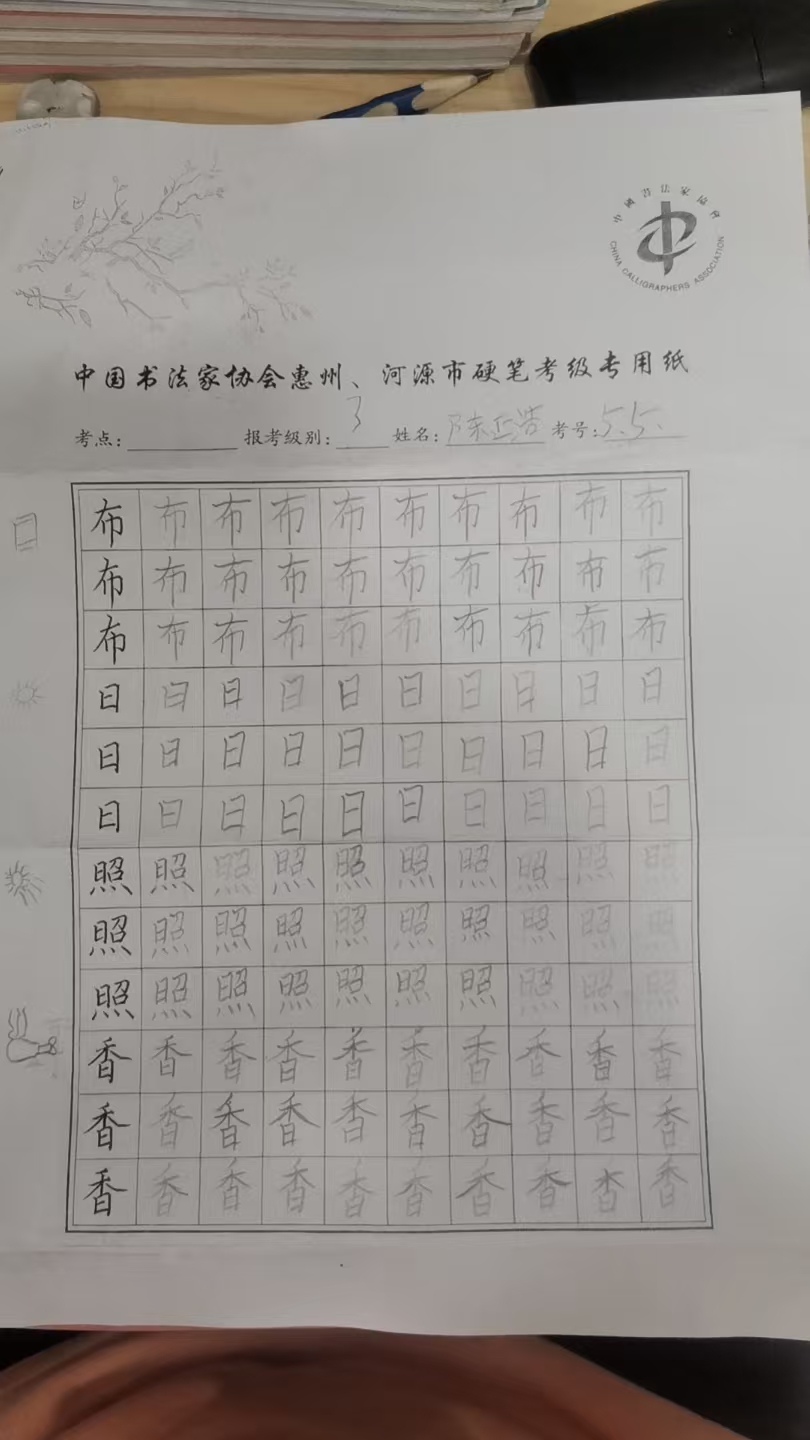 中國書法家協會
CHINA CALLIGRAPHERS ASSOCIATION
中国书法家协会惠州、河源市硬笔考级专用纸
考点: 报考级别: 3 姓名: 陈正浩 考号: 5.5.
布 布 布 布 布 布 布 布 布 布
布 布 布 布 布 布 布 布 布 布
布 布 布 布 布 布 布 布 布 布
日 日 日 日 日 日 日 日 日 日
日 日 日 日 日 日 日 日 日 日
日 日 日 日 日 日 日 日 日 日
照 照 照 照 照 照 照 照 照 照
照 照 照 照 照 照 照 照 照 照
照 照 照 照 照 照 照 照 照 照
香 香 香 香 香 香 香 香 香 香
香 香 香 香 香 香 香 香 香 香
香 香 香 香 香 香 香 香 香 香